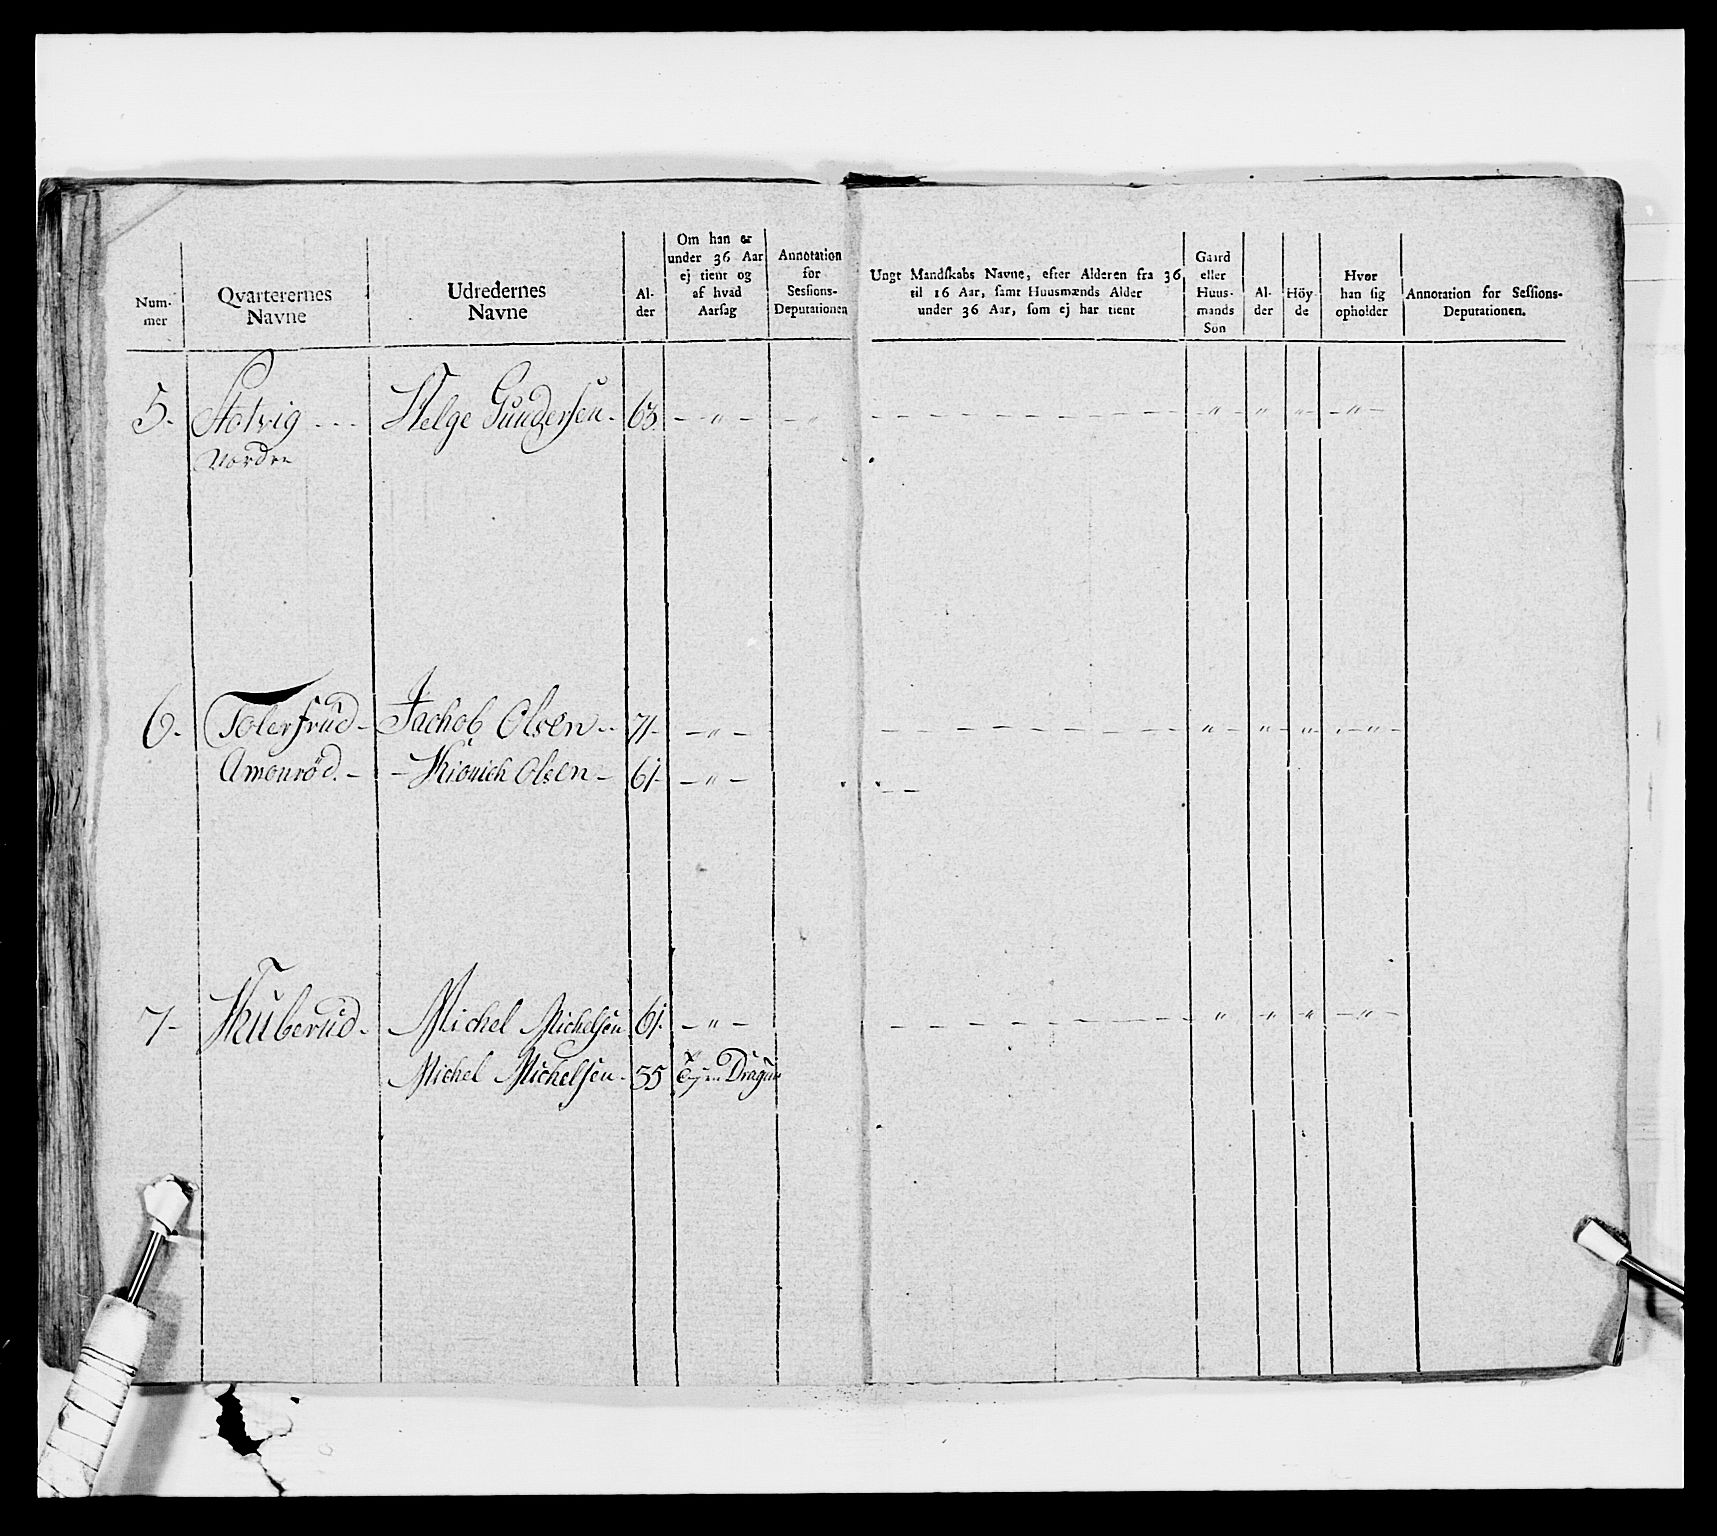 Num-
mer
Qvarterernes
Navne
Udredernes
Navne
Al-
der
Om han er
under 36 Aar
ej tient og
af hvad
Aarsag
Annotation
for
Sessions-
Deputationen
Ungt Mandskabs Navne, efter Alderen fra 36
til 16 Aar, samt Huusmænds Alder
under 36 Aar, som ej har tient
Gaard
eller
Huus-
mands
Søn
Al-
der
Höy-
de
Hvor
han sig
opholder
Annotation for Sessions-
Deputationen.
5. Stolvig - - - Helge Gundersen. 63. - " - - " - " - " - " - " -
Nordre
6. Tolerfrud - Jachob Olsen - 71 - - " - - " - " - " - " -
Amonröd. - - Olsen - 61 - - " -
7 - Skuberud - Michel Michelsen 61. - " - - " - " - " - " -
Michel Michelsen - 35 Dragun